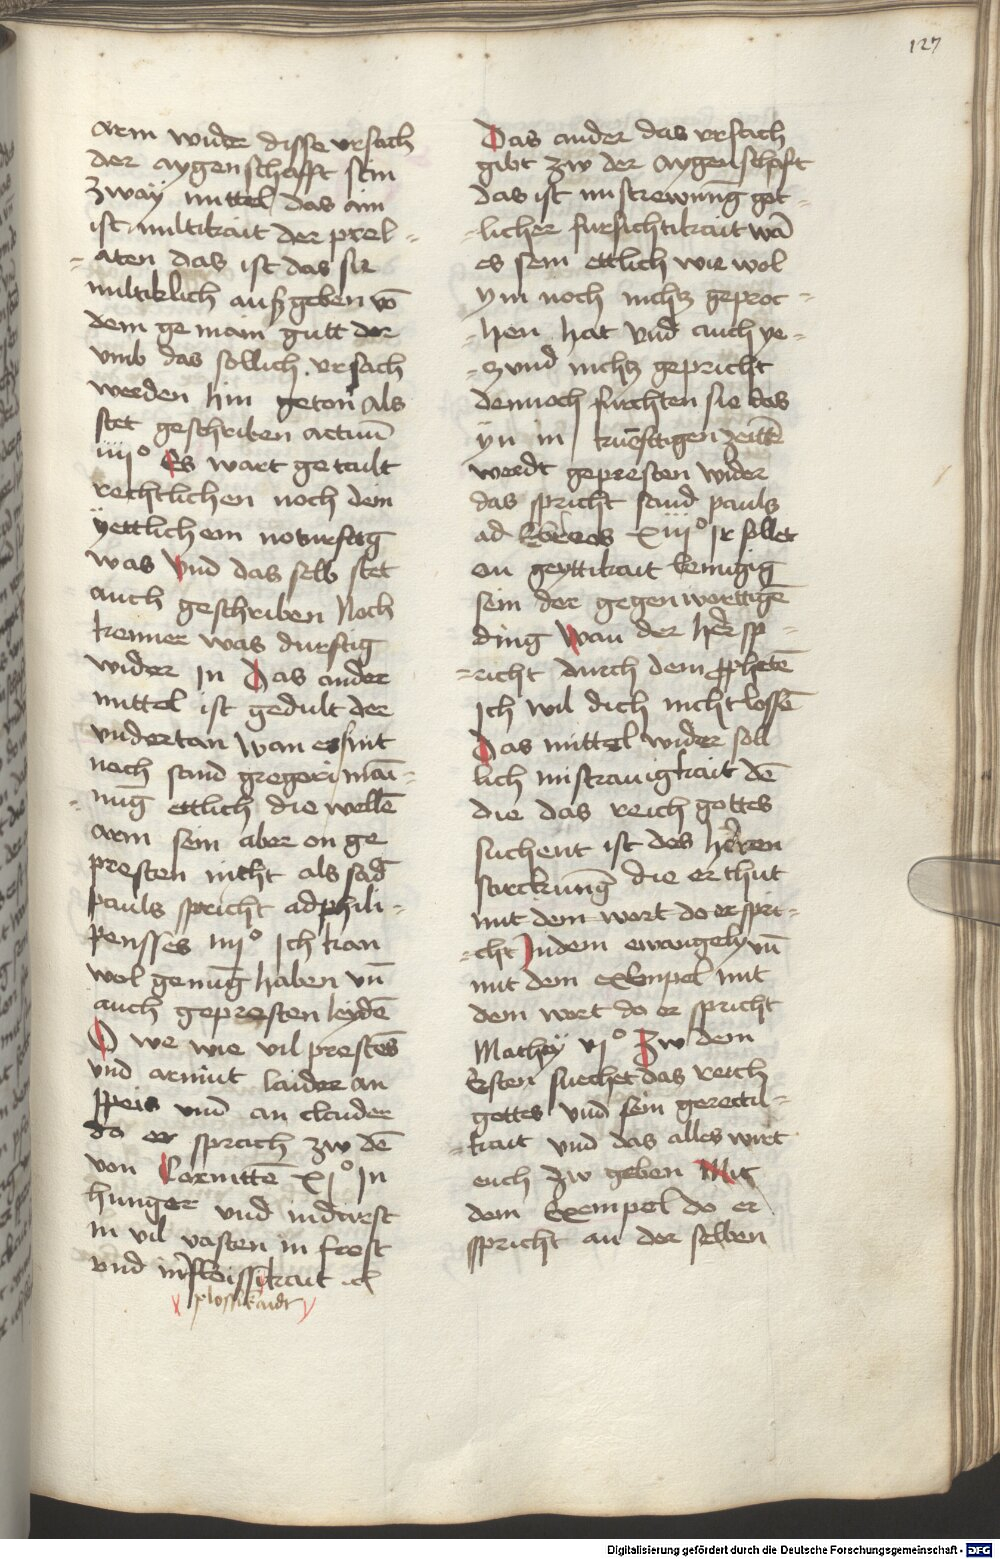 127
arm wider disse vrsach
der aygenschafft sein
zway mittel das ain
ist miltikait der prel-
-aten das ist das sie
miltiklich außgeben vō
dem gemain gutt der
vmb das sollich vrsach
werden hin geton als
stet geschriben actuū
iiijº Es wart getailt
rechtlichen noch dem
yettlichem noturfttig
was Vnd das selb stet
auch geschriben Noch
kenner was durftig
wider In Das ander
mittel ist gedult der
vndertan Wan es sint
noch sand gregori mai-
-nūg ettlich die wellē
arm sein aber on ge
presten nicht als sād
pauls spricht ad phili-
pensses iiijº Ich kan
wol genūg haben vn̄
auch gepresten leydē
O we wie vil prestēs
vnd armut laider an
speis vnd an claider
do er sprach zw dē
von Corinttē xjº In
hunger vnd in durst
in vil vasten in frost
vnd in floissikait ich
plossikaidt
Das ander das vrsach
gibt zw der aygenschafft
das ist mistrewūng got-
-licher fursichtikait wā
es sein ettlich wie wol
ym noch nichtz geproc-
-hen hat vnd auch ye-
-zund nichtz gepricht
dennoch furchten sie das
yn in kunfttigen zeittē
werdt gepresten wider
das spricht sand pauls
ad Ebreos xiijº Ir sollet
on geyttikait benugig
sein der gegenwerttigē
ding Wan der her sp-
-richt durch dem prophetē
Ich wil dich nicht lossē
Das mittel wider soll
lich mistrauigkait dē
die das reich gottes
suchent ist des herren
sterckung die er thut
mit dem wort do er spri-
-cht In dem ewangely vn̄
mit dem exempel mit
dem wort do er spricht
Mathey vjº Zw dem
Ersten suechet das reich
gottes vnd sein gerecti-
-kait vnd das alles wirt
euch zw geben Mit
dem Exempel do er
spricht an der selben
Digitalisierung gefördert durch die Deutsche Forschungsgemeinschaft - DFG